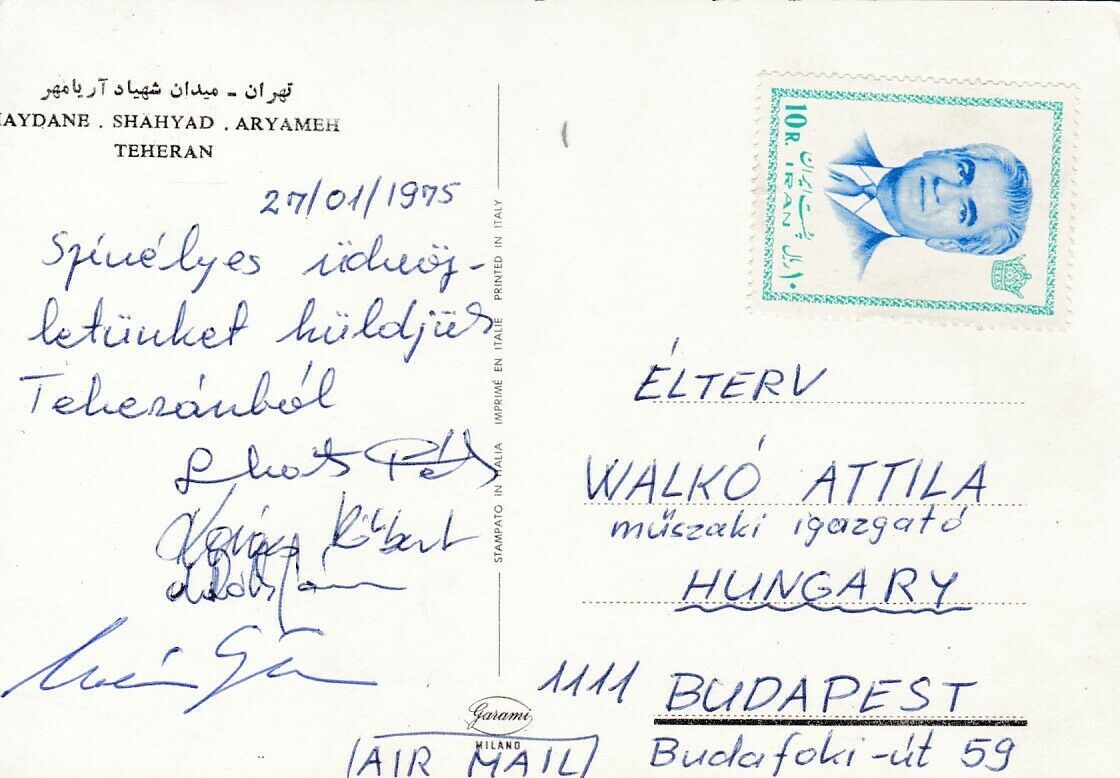 تهران - میدان شهیاد آریامهر
AYDANE . SHAHYAD . ARYAMEH
TEHERAN
27/01/1975
Szívélyes üdvöz-
letünket küldjük
Teheránból
Róbert
STAMPATO IN ITALIA IMPRIMÉ EN ITALIE PRINTED IN ITALY
Garami
MILANO
(AIR MAIL)
10 R. IRAN
پست ایران
۱۰ ریال
ÉLTERV
WALKÓ ATTILA
műszaki igazgató
HUNGARY
1111 BUDAPEST
Budafoki-út 59